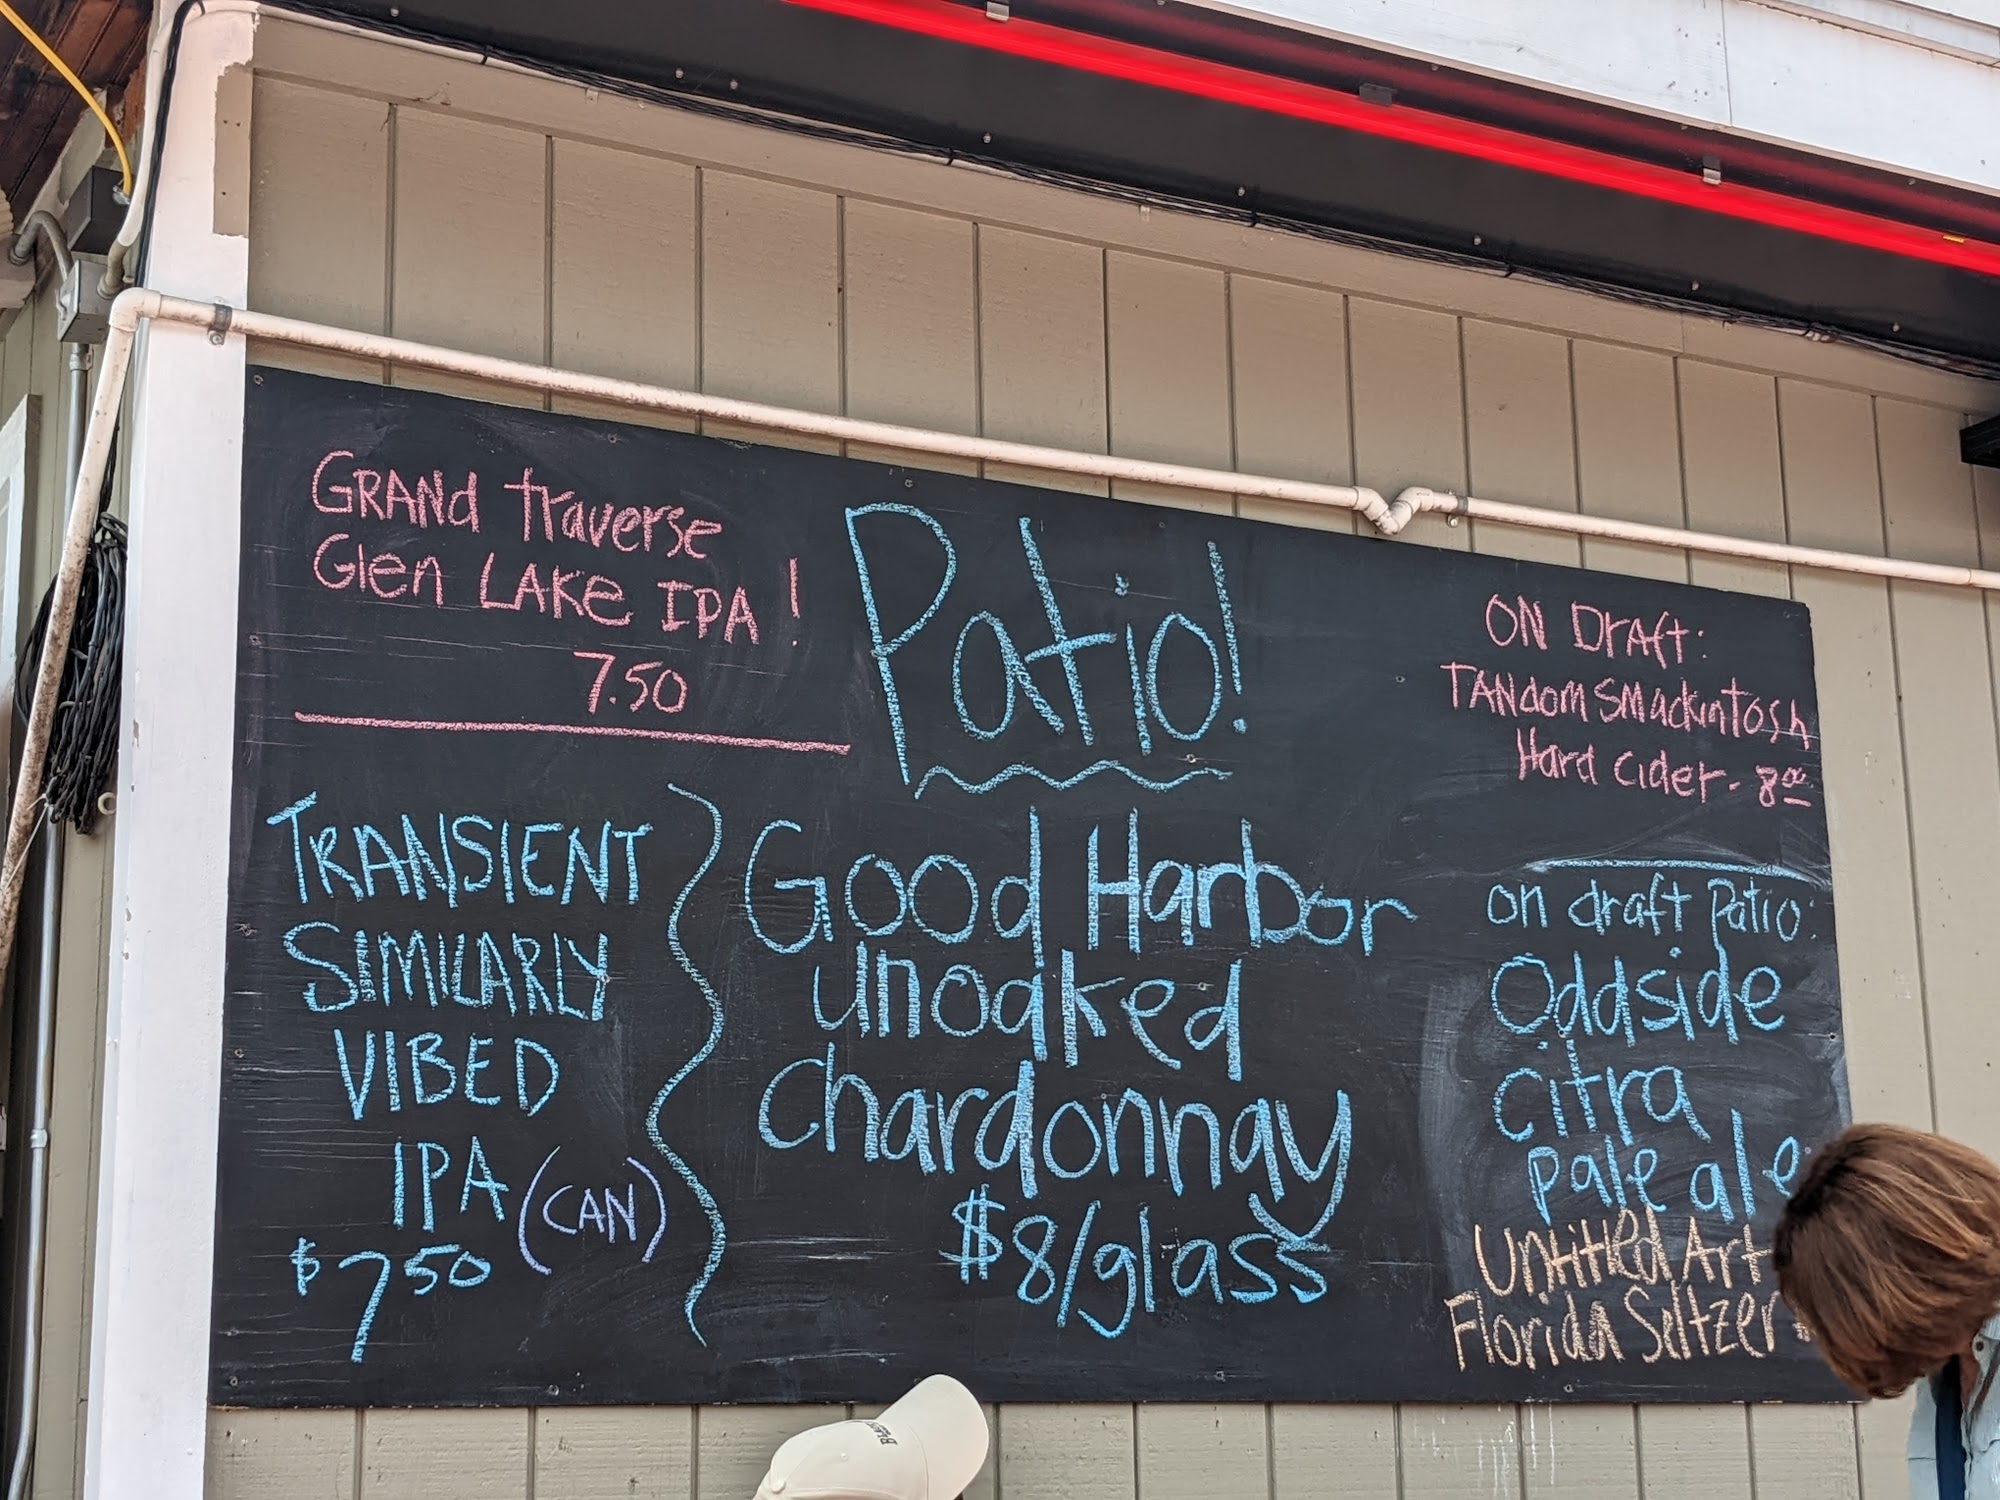 GRANd traverse
Glen LAKe IPA !
7.50
TRANSIENT
SIMILARLY
VIBED
IPA (CAN)
$750
Patio!
Good Harbor
unoaked
chardonnay
$8/glass
ON Draft:
TANdom Smackintosh
Hard Cider - 8.00
on draft Patio:
Oddside
citra
pale ale
Untitled Art
Florida Seltzer